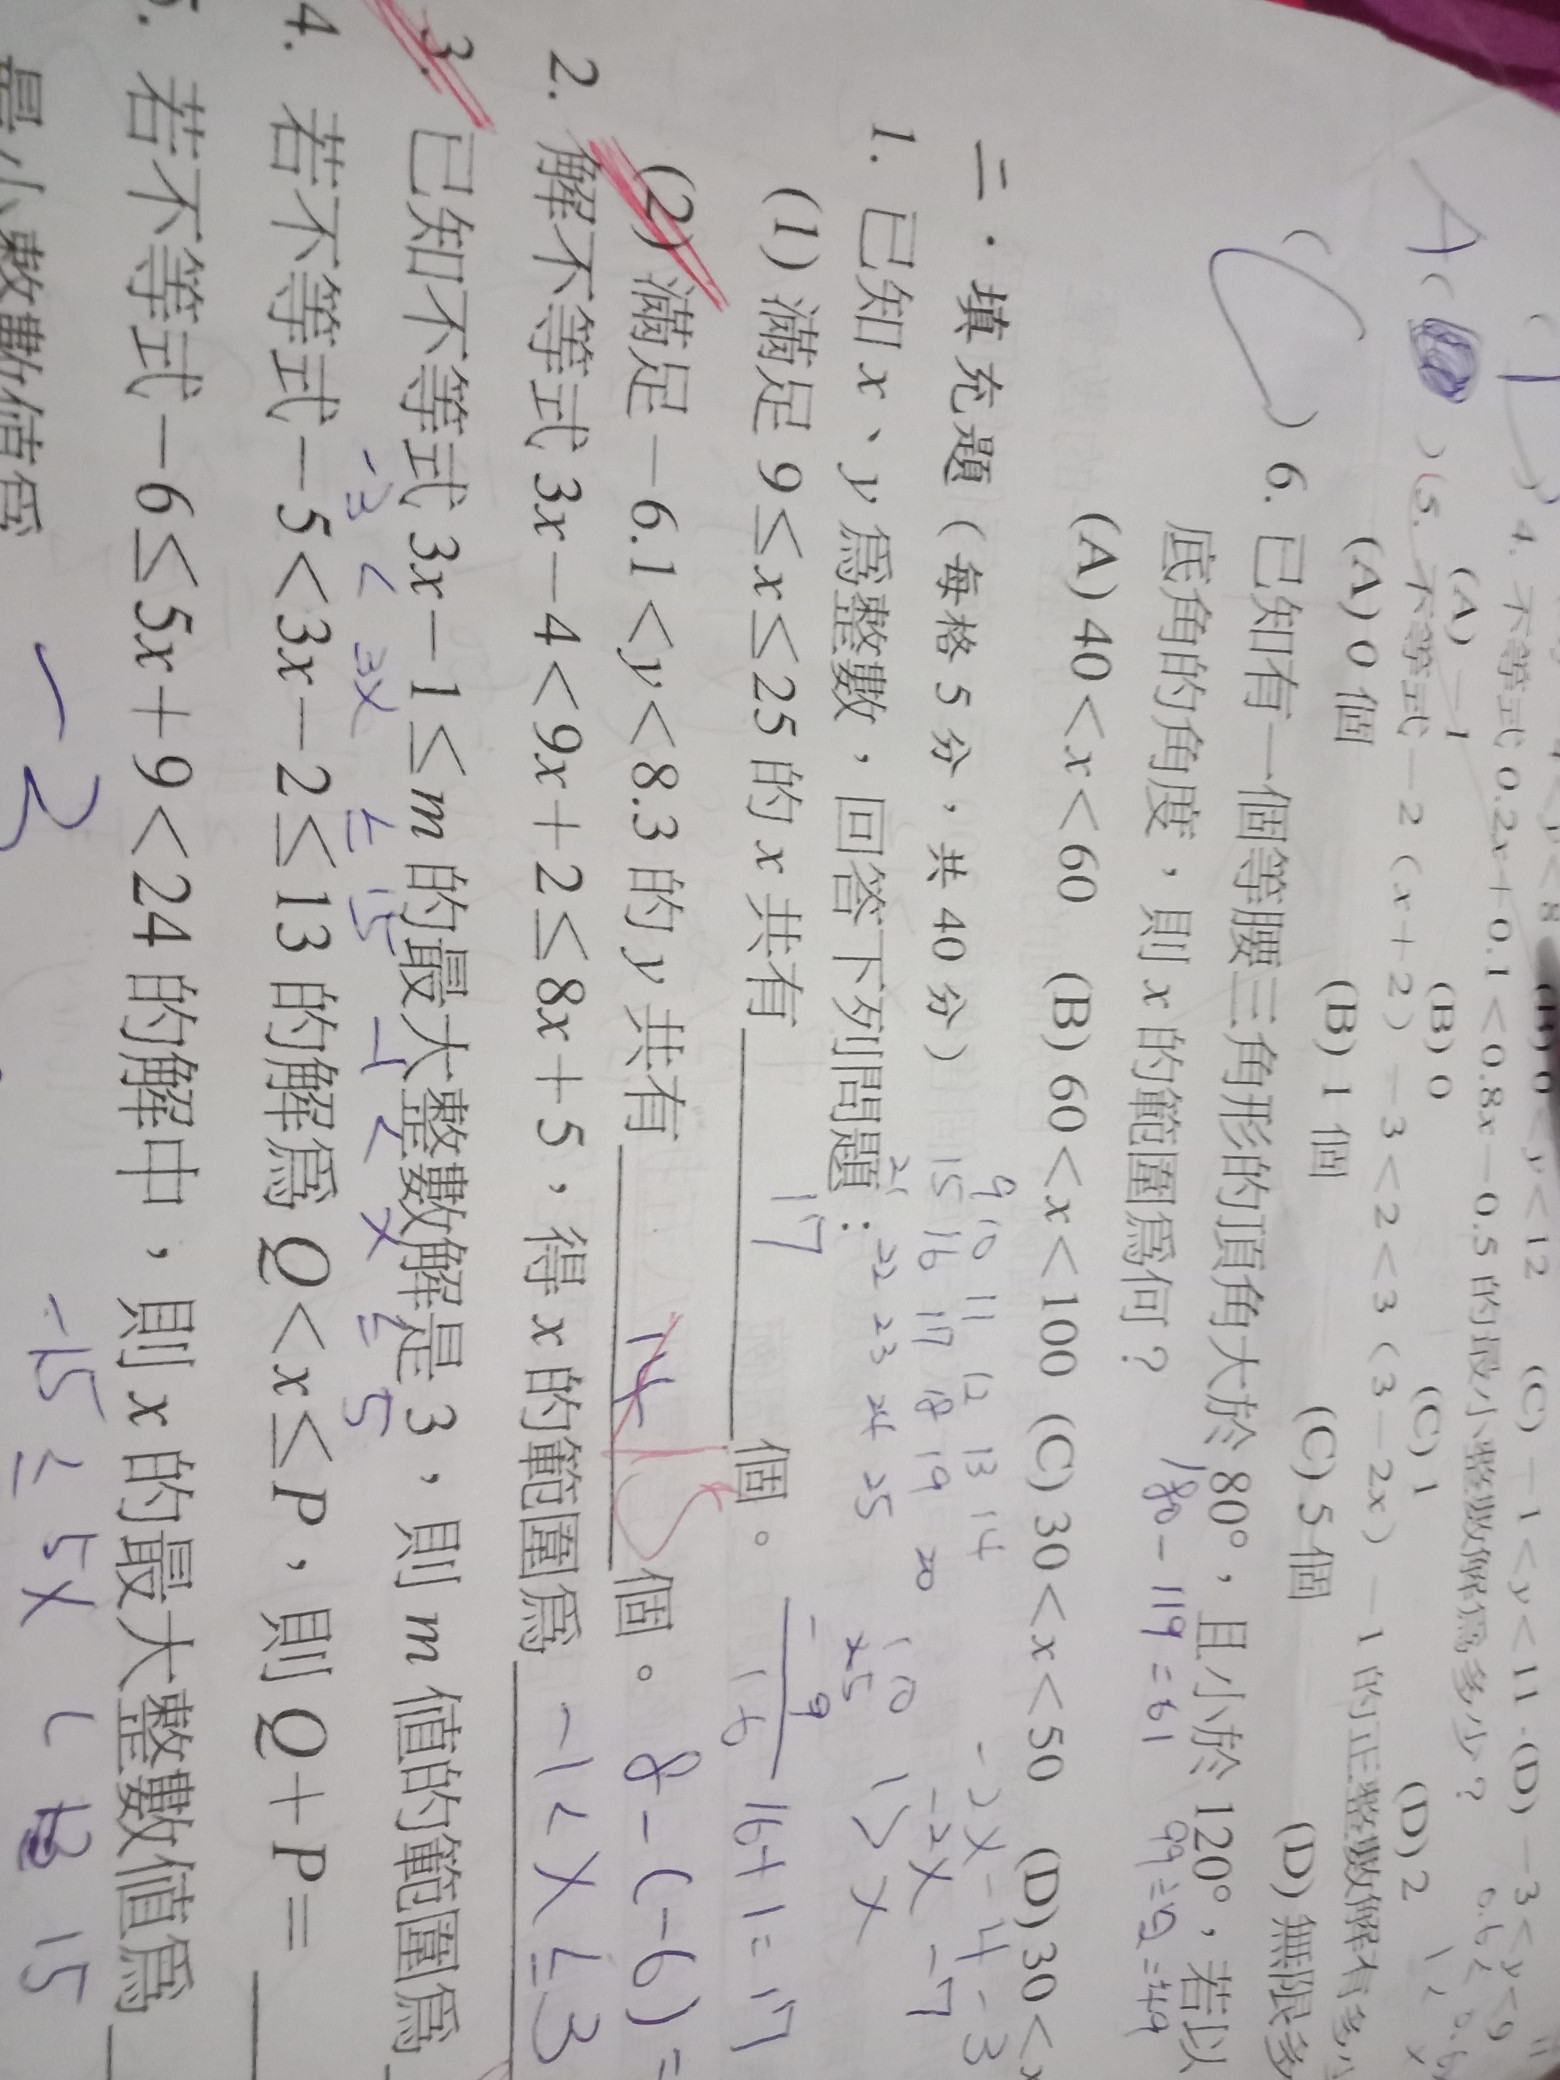 4. 不等式 0.2x＋0.1＜0.8x－0.5 的最小整數解為多少？
(A) －1 (B) 0 (C) 1 (D) 2
5. 不等式－2（x＋2）－3＜2＜3（3－2x）－1 的正整數解有多少
(A) 0 個 (B) 1 個 (C) 5 個 (D) 無限多
6. 已知有一個等腰三角形的頂角大於 80°，且小於 120°，若以
底角的角度，則 x 的範圍為何？
180－119＝61
(A) 40＜x＜60 (B) 60＜x＜100 (C) 30＜x＜50 (D) 30＜x
二、填充題（每格 5 分，共 40 分）
9 10 11 12 13 14
15 16 17 18 19 20
21 22 23 24 25
1. 已知 x、y 為整數，回答下列問題：
(1) 滿足 9≤x≤25 的 x 共有 17 個。
16＋1＝17
(2) 滿足－6.1＜y＜8.3 的 y 共有 14 15 個。
8－(－6)＝
2. 解不等式 3x－4＜9x＋2≤8x＋5，得 x 的範圍為 －1＜x≤3
3. 已知不等式 3x－1≤m 的最大整數解是 3，則 m 值的範圍為
－3＜3x≤15 －1＜x≤5
4. 若不等式－5＜3x－2≤13 的解為 Q＜x≤P，則 Q＋P＝
5. 若不等式－6≤5x＋9＜24 的解中，則 x 的最大整數值為
－15≤5x＜15
最小整數值為 －3